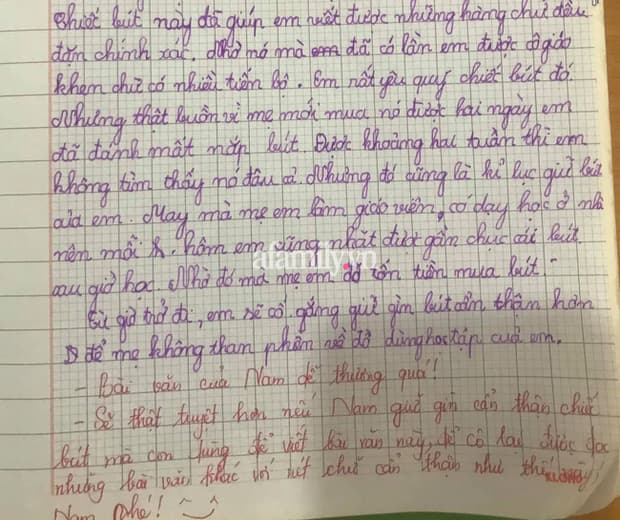 Chiếc bút này đã giúp em viết được những hàng chữ đều
đặn chính xác. Nhờ nó mà em đã có lần em được cô giáo
khen chữ có nhiều tiến bộ. Em rất yêu quý chiếc bút đó.
Nhưng thật buồn vì mẹ mới mua nó được hai ngày em
đã đánh mất nắp bút. Được khoảng hai tuần thì em
không tìm thấy nó đâu cả. Nhưng đó cũng là kỉ lục giữ bút
của em. May mà mẹ em làm giáo viên, có dạy học ở nhà
nên mỗi hôm em cũng nhặt được gần chục cái bút
sau giờ học. Nhờ đó mà mẹ em đỡ tốn tiền mua bút.
afamily.vn
Từ giờ trở đi, em sẽ cố gắng giữ gìn bút cẩn thận hơn
để mẹ không than phiền về đồ dùng học tập của em.
- Bài văn của Nam dễ thương quá!
- Sẽ thật tuyệt hơn nếu Nam giữ gìn cẩn thận chiếc
bút mà con dùng để viết bài văn này, để cô lại được đọc
những bài văn khác với nét chữ cẩn thận như thế này,
Nam nhé!